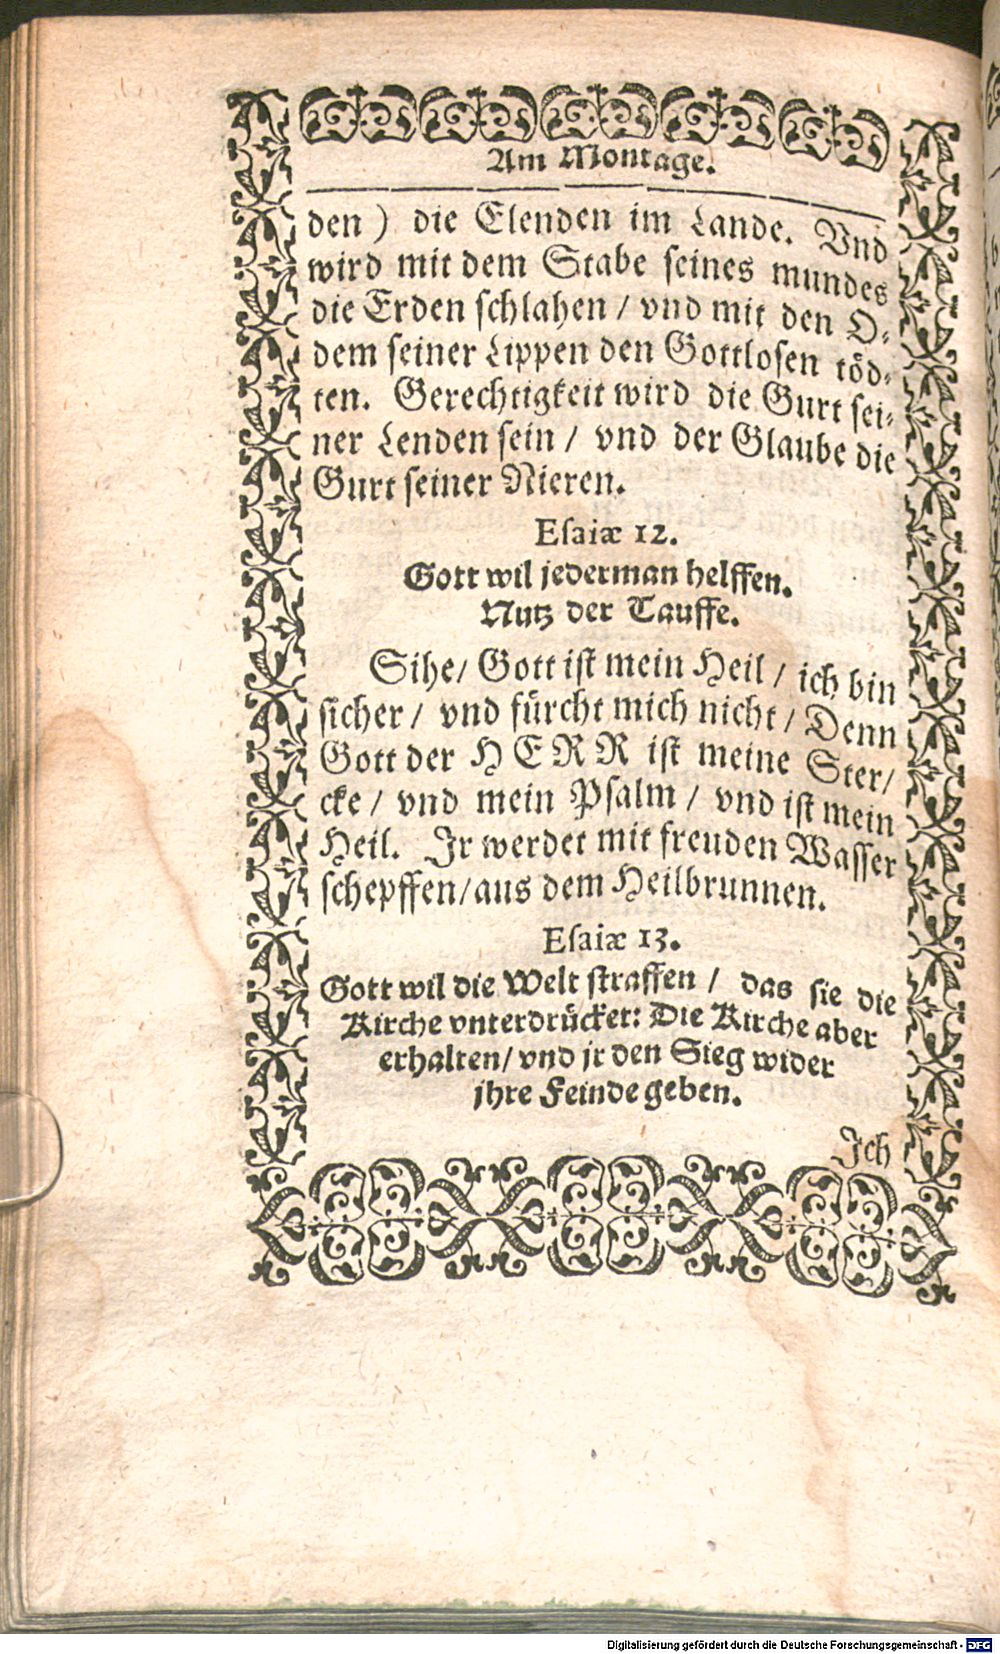 Am Montage.
den) die Elenden im Lande. Vnd
wird mit dem Stabe seines mundes
die Erden schlahen / vnd mit den O-
dem seiner Lippen den Gottlosen töd-
ten. Gerechtigkeit wird die Gurt sei-
ner Lenden sein / vnd der Glaube die
Gurt seiner Nieren.
Esaiæ 12.
Gott wil jederman helffen.
Nutz der Tauffe.
Sihe/ Gott ist mein Heil / ich bin
sicher / vnd fürcht mich nicht / Denn
Gott der HERR ist meine Ster/
cke / vnd mein Psalm / vnd ist mein
Heil. Ir werdet mit freuden Wasser
schepffen/aus dem Heilbrunnen.
Esaiæ 13.
Gott wil die Welt straffen / das sie die
Kirche vnterdrücket: Die Kirche aber
erhalten/ vnd jr den Sieg wider
jhre Feinde geben.
Ich
Digitalisierung gefördert durch die Deutsche Forschungsgemeinschaft - DFG